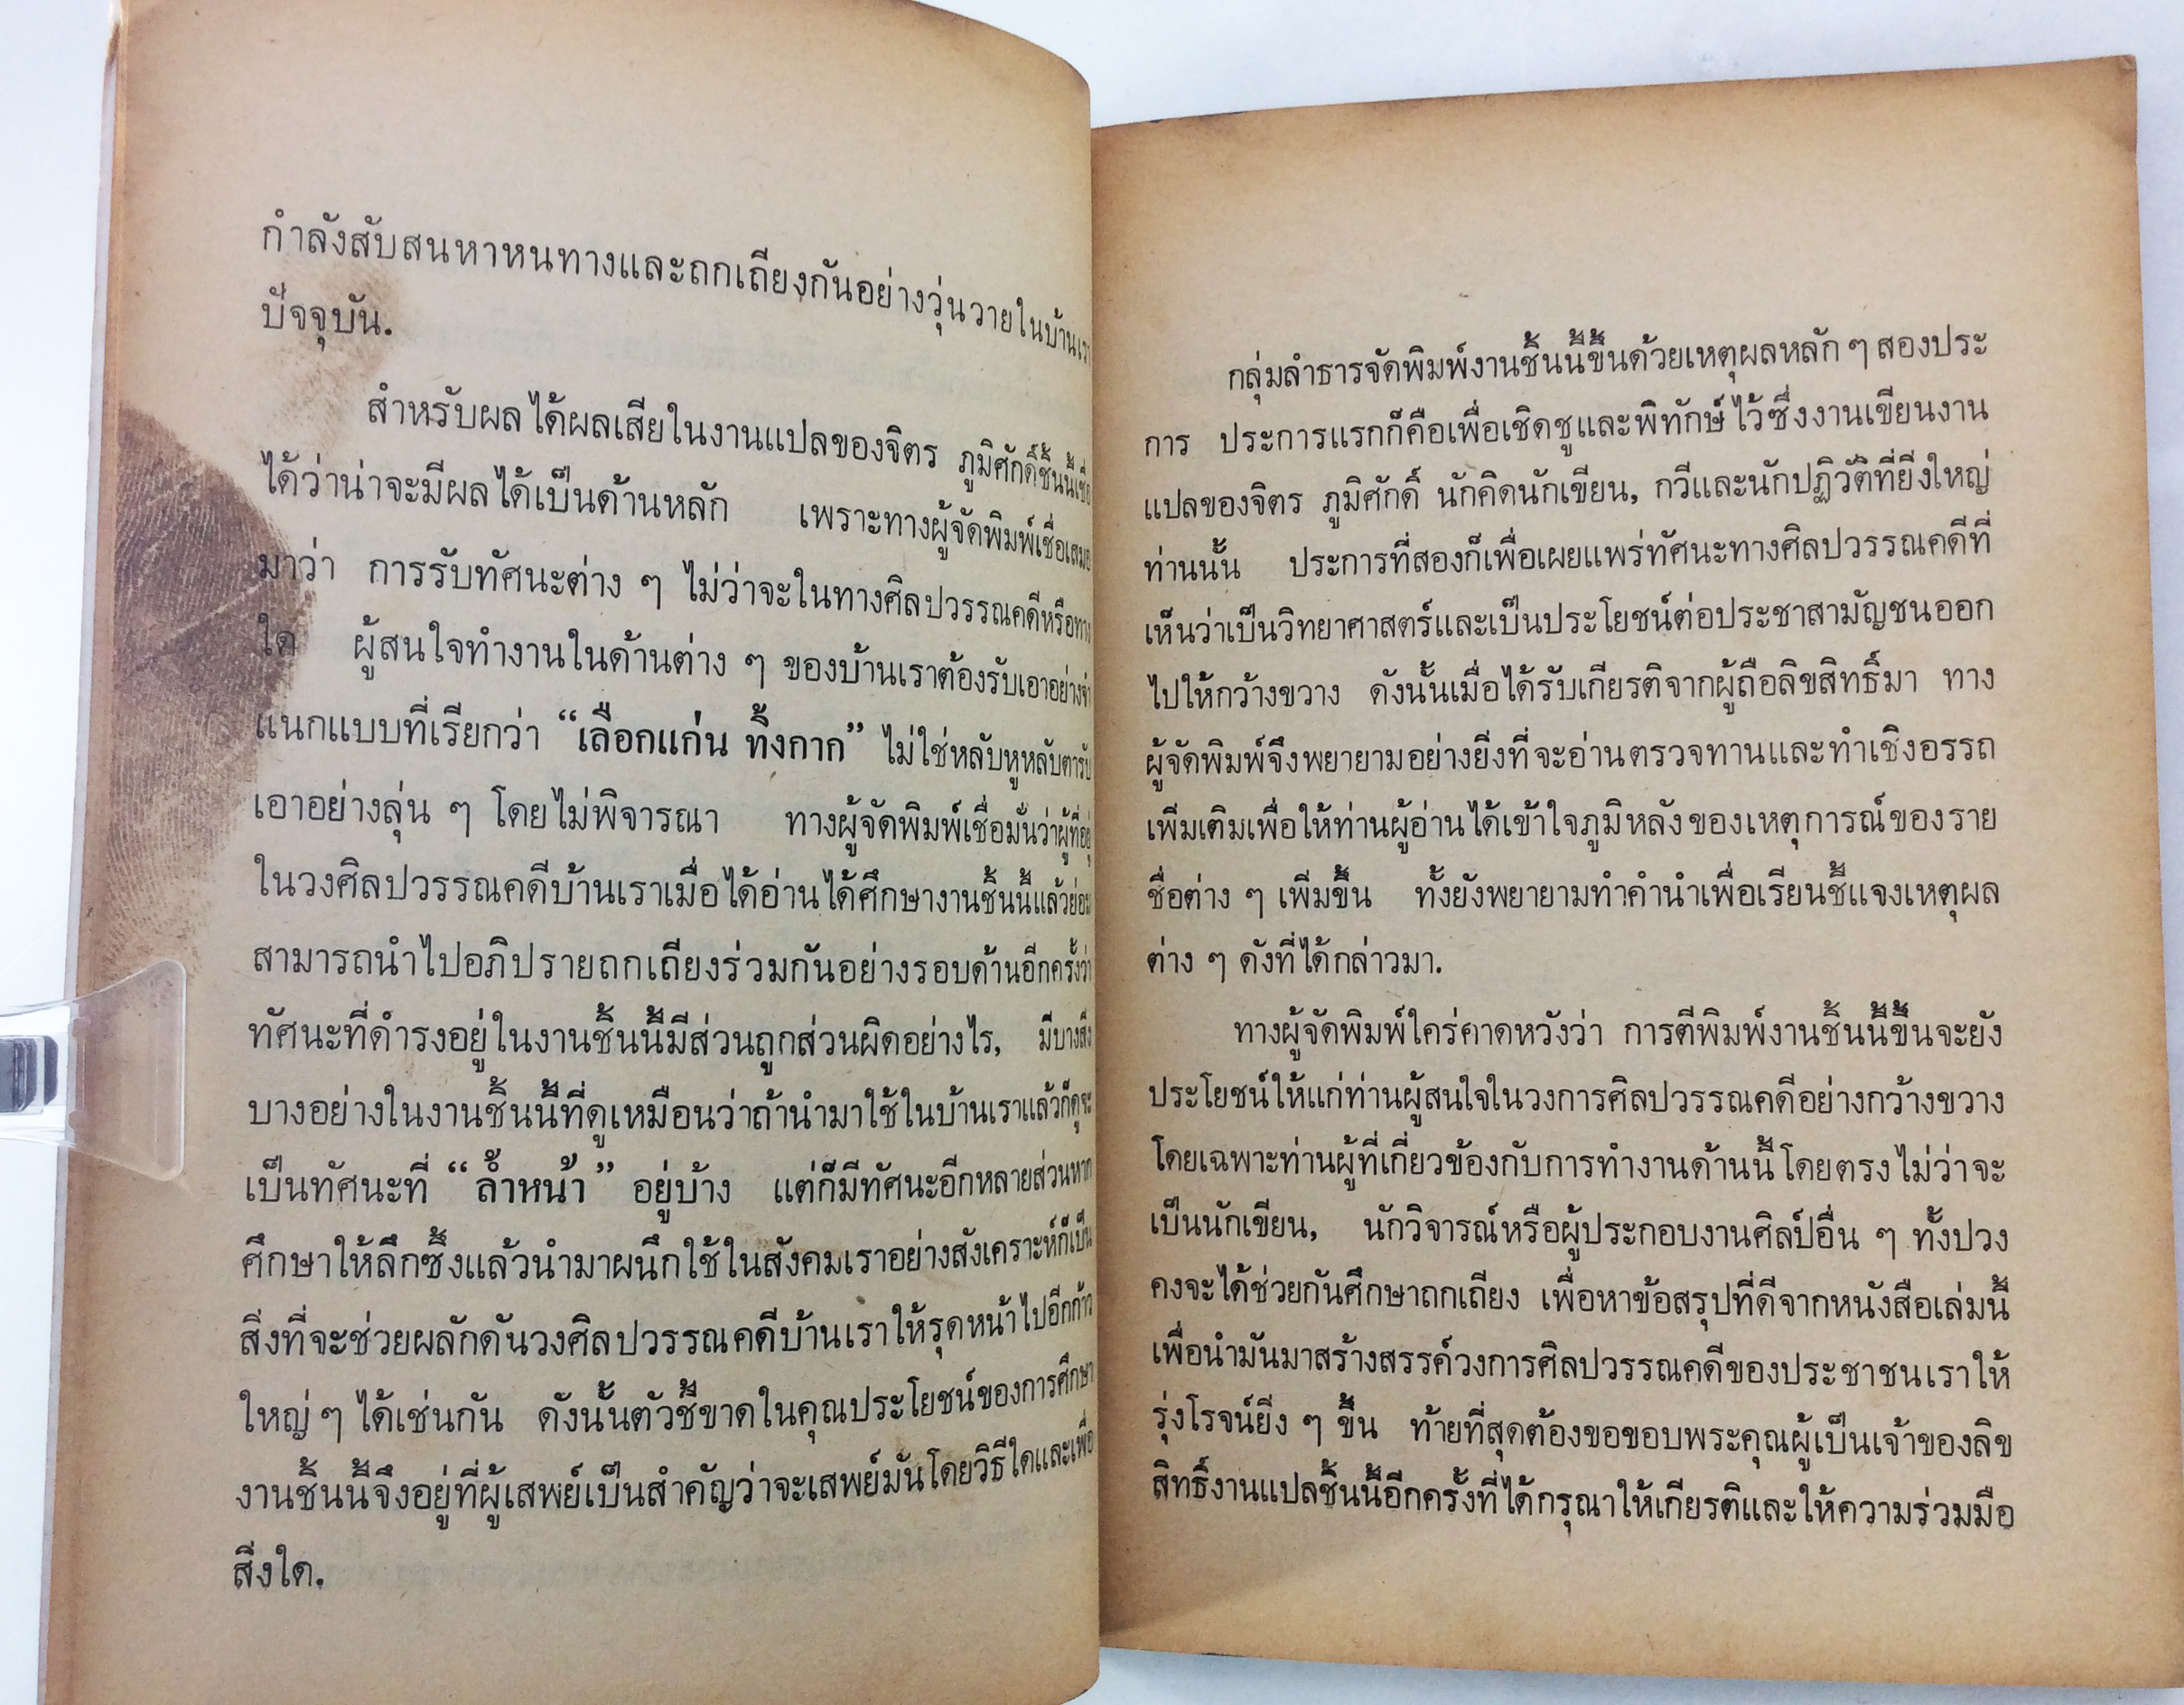 กำลังสับสนหาหนทางและถกเถียงกันอย่างวุ่นวายในบ้านเรา
ปัจจุบัน.
สำหรับผลได้ผลเสียในงานแปลของจิตร ภูมิศักดิ์ชิ้นนี้เชื่อ
ได้ว่าน่าจะมีผลได้เป็นด้านหลัก เพราะทางผู้จัดพิมพ์เชื่อเสมอ
มาว่า การรับทัศนะต่าง ๆ ไม่ว่าจะในทางศิลปวรรณคดีหรือทาง
ใด ผู้สนใจทำงานในด้านต่าง ๆ ของบ้านเราต้องรับเอาอย่างจำ
แนกแบบที่เรียกว่า “เลือกแก่น ทิ้งกาก” ไม่ใช่หลับหูหลับตารับ
เอาอย่างลุ่น ๆ โดยไม่พิจารณา ทางผู้จัดพิมพ์เชื่อมั่นว่าผู้ที่อยู่
ในวงศิลปวรรณคดีบ้านเราเมื่อได้อ่านได้ศึกษางานชิ้นนี้แล้วย่อม
สามารถนำไปอภิปรายถกเถียงร่วมกันอย่างรอบด้านอีกครั้งว่า
ทัศนะที่ดำรงอยู่ในงานชิ้นนี้มีส่วนถูกส่วนผิดอย่างไร, มีบางสิ่ง
บางอย่างในงานชิ้นนี้ที่ดูเหมือนว่าถ้านำมาใช้ในบ้านเราแล้วก็ดูจะ
เป็นทัศนะที่ “ล้ำหน้า” อยู่บ้าง แต่ก็มีทัศนะอีกหลายส่วนหาก
ศึกษาให้ลึกซึ้งแล้วนำมาผนึกใช้ในสังคมเราอย่างสังเคราะห์ก็เป็น
สิ่งที่จะช่วยผลักดันวงศิลปวรรณคดีบ้านเราให้รุดหน้าไปอีกก้าว
ใหญ่ ๆ ได้เช่นกัน ดังนั้นตัวชี้ขาดในคุณประโยชน์ของการศึกษา
งานชิ้นนี้จึงอยู่ที่ผู้เสพย์เป็นสำคัญว่าจะเสพย์มันโดยวิธีใดและเพื่อ
สิ่งใด.
กลุ่มลำธารจัดพิมพ์งานชิ้นนี้ขึ้นด้วยเหตุผลหลัก ๆ สองประ
การ ประการแรกก็คือเพื่อเชิดชูและพิทักษ์ไว้ซึ่งงานเขียนงาน
แปลของจิตร ภูมิศักดิ์ นักคิดนักเขียน, กวีและนักปฏิวัติที่ยิ่งใหญ่
ท่านนั้น ประการที่สองก็เพื่อเผยแพร่ทัศนะทางศิลปวรรณคดีที่
เห็นว่าเป็นวิทยาศาสตร์และเป็นประโยชน์ต่อประชาสามัญชนออก
ไปให้กว้างขวาง ดังนั้นเมื่อได้รับเกียรติจากผู้ถือลิขสิทธิ์มา ทาง
ผู้จัดพิมพ์จึงพยายามอย่างยิ่งที่จะอ่านตรวจทานและทำเชิงอรรถ
เพิ่มเติมเพื่อให้ท่านผู้อ่านได้เข้าใจภูมิหลังของเหตุการณ์ของราย
ชื่อต่าง ๆ เพิ่มขึ้น ทั้งยังพยายามทำคำนำเพื่อเรียนชี้แจงเหตุผล
ต่าง ๆ ดังที่ได้กล่าวมา.
ทางผู้จัดพิมพ์ใคร่คาดหวังว่า การตีพิมพ์งานชิ้นนี้ขึ้นจะยัง
ประโยชน์ให้แก่ท่านผู้สนใจในวงการศิลปวรรณคดีอย่างกว้างขวาง
โดยเฉพาะท่านผู้ที่เกี่ยวข้องกับการทำงานด้านนี้โดยตรงไม่ว่าจะ
เป็นนักเขียน, นักวิจารณ์หรือผู้ประกอบงานศิลป์อื่น ๆ ทั้งปวง
คงจะได้ช่วยกันศึกษาถกเถียง เพื่อหาข้อสรุปที่ดีจากหนังสือเล่มนี้
เพื่อนำมันมาสร้างสรรค์วงการศิลปวรรณคดีของประชาชนเราให้
รุ่งโรจน์ยิ่ง ๆ ขึ้น ท้ายที่สุดต้องขอขอบพระคุณผู้เป็นเจ้าของลิข
สิทธิ์งานแปลชิ้นนี้อีกครั้งที่ได้กรุณาให้เกียรติและให้ความร่วมมือ